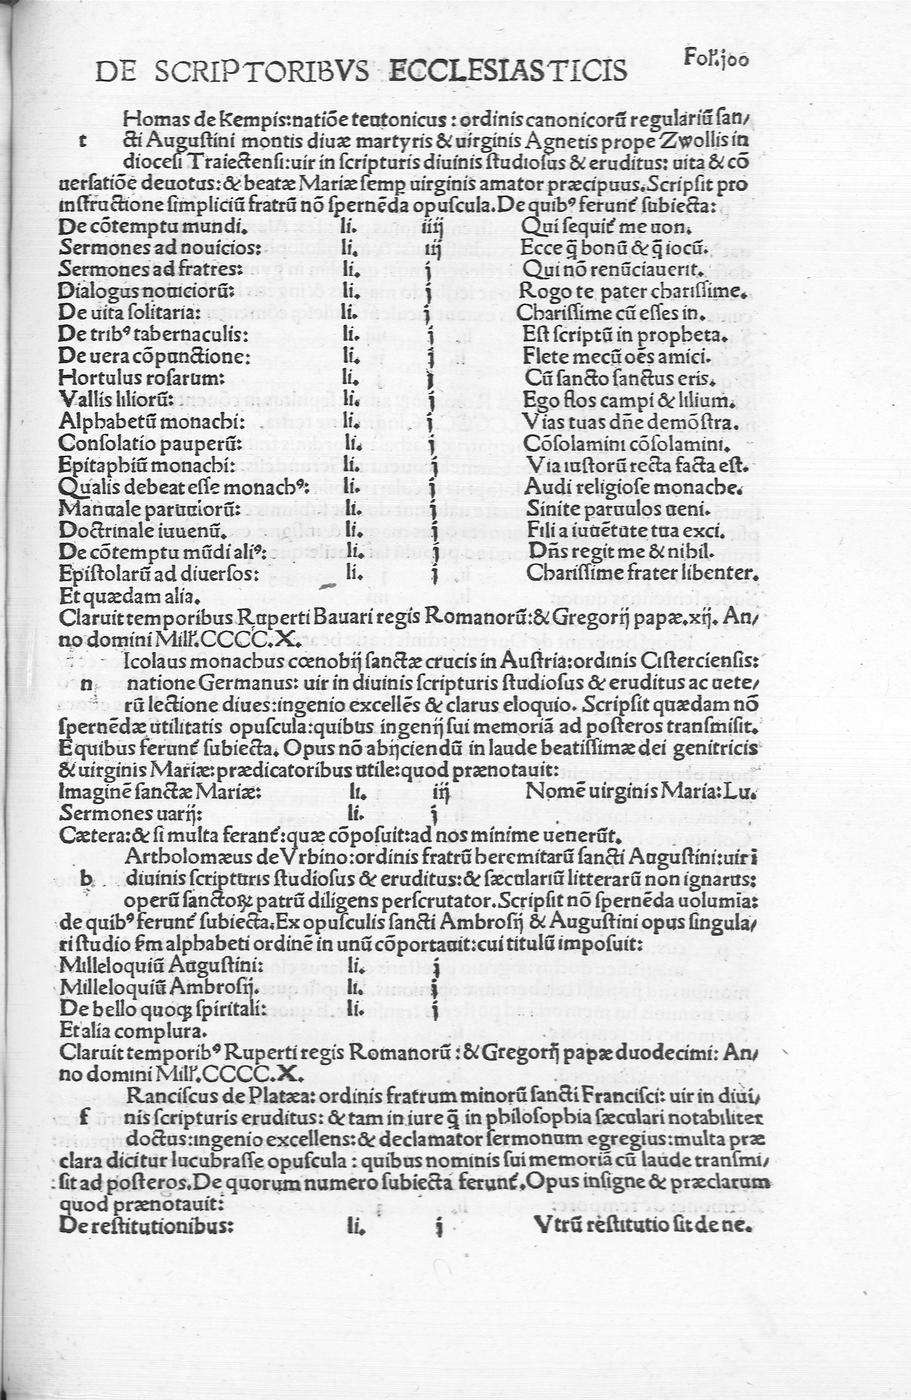 DE SCRIPTORIBVS ECCLESIASTICIS Fol.joo
Homas de Kempis:natiõe teutonicus : ordinis canonicorũ regulariũ san/
t cti Augustini montis diuæ martyris & uirginis Agnetis prope Zwollis in
diocesi Traiectensi:uir in scripturis diuinis studiosus & eruditus: uita & cõ
uersatiõe deuotus:& beatæ Mariæ semp uirginis amator præcipuus.Scripsit pro
instructione simpliciũ fratrũ nõ spernẽda opuscula.De quibꝰ ferunt᷑ subiecta:
De cõtemptu mundi. li. iiij Qui sequit᷑ me non.
Sermones ad nouicios: li. iij Ecce q̃ bonũ & q̃ iocũ.
Sermones ad fratres: li. j Qui nõ renũciauerit.
Dialogus nouiciorũ: li. j Rogo te pater charissime.
De uita solitaria: li. j Charissime cũ esses in.
De tribꝰ tabernaculis: li. j Est scriptũ in propheta.
De uera cõpunctione: li. j Flete mecũ oẽs amici.
Hortulus rosarum: li. j Cũ sancto sanctus eris.
Vallis liliorũ: li. j Ego flos campi & lilium.
Alphabetũ monachi: li. j Vias tuas dñe demõstra.
Consolatio pauperũ: li. j Cõsolamini cõsolamini.
Epitaphiũ monachi: li. j Via iustorũ recta facta est.
Qualis debeat esse monachꝰ: li. j Audi religiose monache.
Manuale paruuiorũ: li. j Sinite paruulos ueni.
Doctrinale iuuenũ. li. j Fili a iuuẽtute tua exci.
De cõtemptu mũdi aliꝰ: li. j Dñs regit me & nihil.
Epistolarũ ad diuersos: li. j Charissime frater libenter.
Et quædam alia.
Claruit temporibus Ruperti Bauari regis Romanorũ:& Gregorij papæ.xij. An/
no domini Mill̃.CCCC.X.
Icolaus monachus cœnobij sanctæ crucis in Austria:ordinis Cisterciensis:
n natione Germanus: uir in diuinis scripturis studiosus & eruditus ac uete/
rũ lectione diues:ingenio excellẽs & clarus eloquio. Scripsit quædam nõ
spernẽdæ utilitatis opuscula:quibus ingenij sui memoriã ad posteros transmisit.
E quibus ferunt᷑ subiecta. Opus nõ abijciendũ in laude beatissimæ dei genitricis
& uirginis Mariæ:prædicatoribus utile:quod prænotauit:
Imaginẽ sanctæ Mariæ: li. iij Nomẽ uirginis Maria:Lu.
Sermones uarij: li. j
Cætera:& si multa ferant᷑:quæ cõposuit:ad nos minime uenerũt.
Artholomæus de Vrbino:ordinis fratrũ heremitarũ sancti Augustini:uir i
b diuinis scripturis studiosus & eruditus:& sæculariũ litterarũ non ignarus:
operũ sanctoꝝ patrũ diligens perscrutator.Scripsit nõ spernẽda uolumia:
de quibꝰ ferunt᷑ subiecta.Ex opusculis sancti Ambrosij & Augustini opus singula/
ri studio s̃m alphabeti ordinẽ in unũ cõportauit:cui titulũ imposuit:
Milleloquiũ Augustini: li. j
Milleloquiũ Ambrosij. li. j
De bello quoqꝫ spiritali: li. j
Et alia complura.
Claruit temporibꝰ Ruperti regis Romanorũ :& Gregorij papæ duodecimi: An/
no domini Mill̃.CCCC.X.
Ranciscus de Platæa: ordinis fratrum minorũ sancti Francisci: uir in diui/
f nis scripturis eruditus: & tam in iure q̃ in philosophia sæculari notabiliter
doctus:ingenio excellens:& declamator sermonum egregius:multa præ
clara dicitur lucubrasse opuscula : quibus nominis sui memoriã cũ laude transmi/
sit ad posteros.De quorum numero subiecta ferunt᷑.Opus insigne & præclarum
quod prænotauit:
De restitutionibus: li. j Vtrũ restitutio sit de ne.